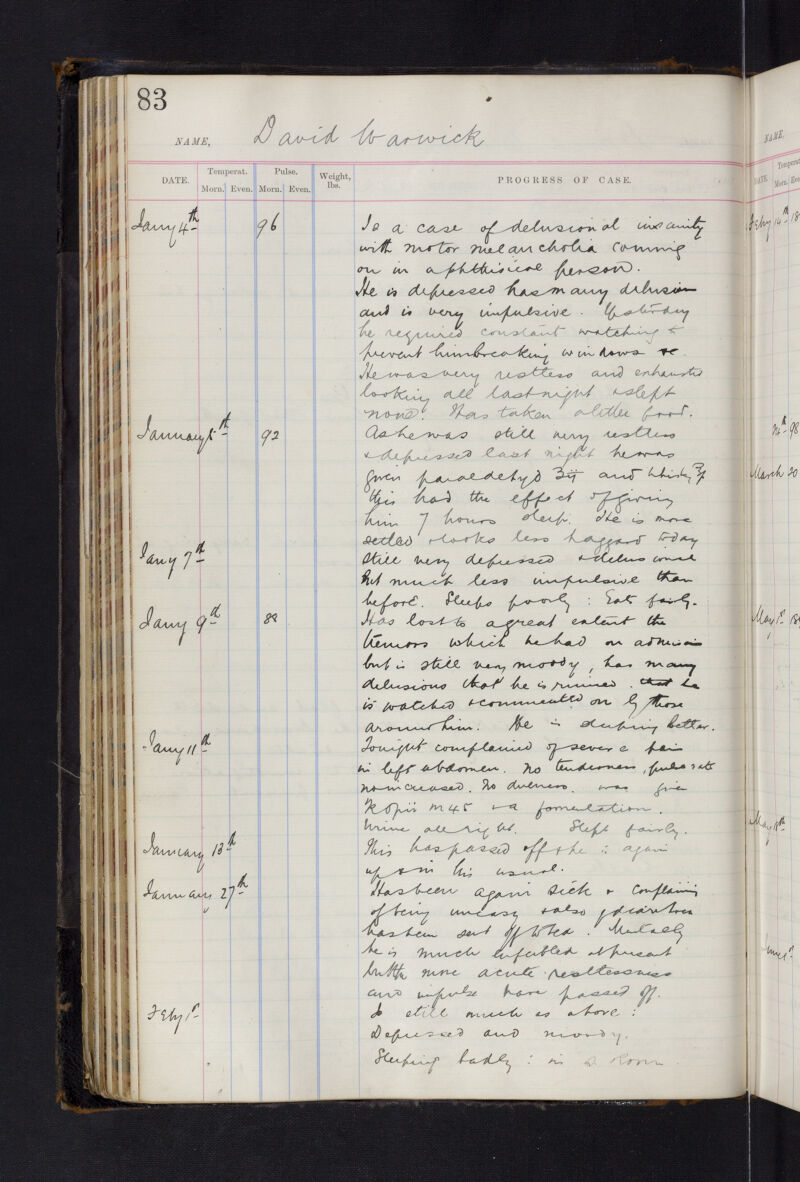 83
NAME, David Warwick
DATE. Temperat. Pulse. Weight, lbs. PROGRESS OF CASE.
Morn. Even. Morn. Even.
Jany 4th 96 Is a case of delusional insanity
with motor melancholia coming
on in a phthisical person.
He is depressed has many delusions
and is very impulsive. Yesterday
he required constant watching to
prevent him breaking windows &c.
He was very restless and exhausted
looking all last night & slept
none. Has taken a little food.
January 5th 92 As he was still very restless
& depressed last night he was
given paraldehyd ʒii and whisky
this had the effect of giving
him 7 hours sleep. He is more
settled & looks less haggard today
Jany 7th Still very depressed & delusional
but much less impulsive than
before. Sleeps poorly : Eats fairly.
Jany 9th 88 Has lost to a great extent the
tremors which he had on admission
but is still very moody, has many
delusions that he is ruined. that he
is watched & commented on by those
around him. He is sleeping better.
Jany 11th Tonight complained of severe pain
in left abdomen. No tenderness, pulse rate
not increased. No dulness. was given
opii m45 & a fomentation.
Urine all right. Slept fairly.
January 13th This has passed off & he is again
up & in his usual.
January 27th Has been again sick & complaining
of being uneasy & also of diarrhoea
has been sent off to bed. Mentally
he is much enfeebled at present
but the more acute restlessness
and impulse have passed off.
Feby 1st Is still much as above :
Depressed and moody.
Sleeping badly : in
NAME.
DATE. Temperat
Morn. Eve
Feby 14th 18
98
March 20
May 1st
May